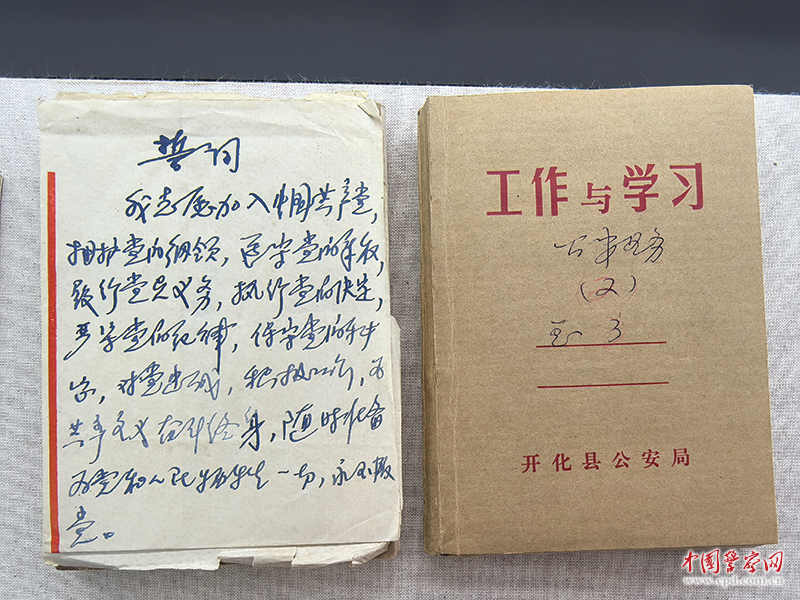 誓词
我志愿加入中国共产党，
拥护党的纲领，遵守党的章程，
履行党员义务，执行党的决定，
严守党的纪律，保守党的秘
密，对党忠诚，积极工作，为
共产主义奋斗终身，随时准备
为党和人民牺牲一切，永不叛
党。
工作与学习
(又)
开化县公安局
中国警察网
www.cpd.com.cn